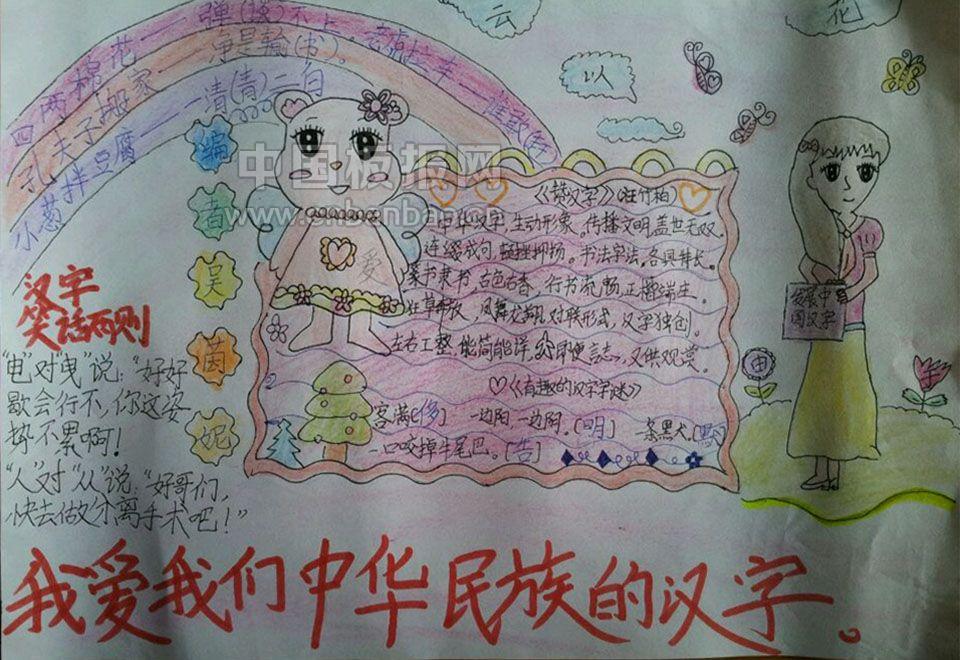 四两棉花——弹(谈)不上。
孔夫子搬家——净是输(书)。
小葱拌豆腐——一清(青)二白
云
花
以
编
者
吴
茵
妮
中国板报网
爱
汉字
笑话两则
"电"对"曳"说:"好好
歇会行不,你这姿
势不累啊!
"人"对"从"说:"好哥们,
快去做分离手术吧!"
《赞汉字》(汪竹柏)
中华汉字,生动形象,传播文明,盖世无双.
连缀成句,铿锵抑扬。书法字法,各具其长。
篆书隶书,古色古香,行书流畅,正楷端庄.
狂草奔放,凤舞龙翔,对联形式,汉字独创.
左右工整,能简能详,
又供观赏。
♡《有趣的汉字字谜》
客满[侈] 一边阳一边阴.[明] 一条黑犬.[默]
一口咬掉牛尾巴。[告]
发展中
国汉字
由
我爱我们中华民族的汉字。